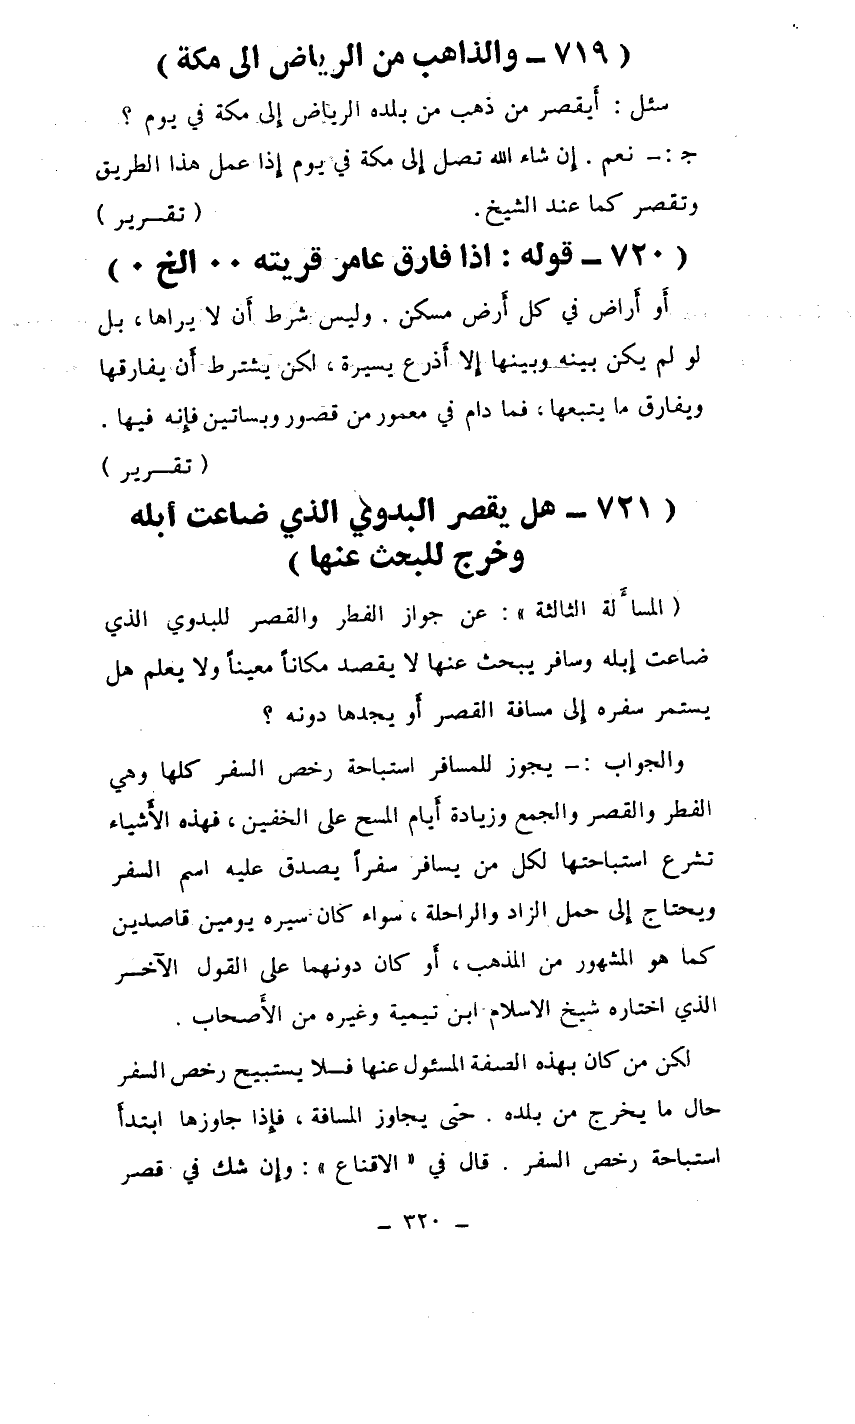 ( ٧١٩ ـ والذاهب من الرياض الى مكة )
سئل : أيقصر من ذهب من بلده الرياض إلى مكة في يوم ؟
جـ :ـ نعم . إن شاء الله تصل إلى مكة في يوم إذا عمل هذا الطريق
وتقصر كما عند الشيخ . ( تقـــرير )
( ٧٢٠ ـ قوله : اذا فارق عامر قريته ٠٠ الخ ٠ )
أو أراض في كل أرض مسكن . وليس شرط أن لا يراها ، بـل
لو لم يكن بينه وبينها إلا أذرع يسيرة ، لكن يشترط أن يفارقها
ويفارق ما يتبعها ، فما دام في معمور من قصور وبساتين فإنه فيها .
( تقـــرير )
( ٧٢١ ـ هل يقصر البدوي الذي ضاعت أبله
وخرج للبحث عنها )
( المسألة الثالثة » : عن جواز الفطر والقصر للبدوي الذي
ضاعت إبله وسافر يبحث عنها لا يقصد مكاناً معيناً ولا يعلم هل
يستمر سفره إلى مسافة القصر أو يجدها دونه ؟
والجواب :ـ يجوز للمسافر استباحة رخص السفر كلها وهي
الفطر والقصر والجمع وزيادة أيام المسح على الخفين ، فهذه الأشياء
تشرع استباحتها لكل من يسافر سفراً يصدق عليه اسم السفر
ويحتاج إلى حمل الزاد والراحلة ، سواء كان سيره يومين قاصدين
كما هو المشهور من المذهب ، أو كان دونهما على القول الآخـر
الذي اختاره شيخ الاسلام ابن تيمية وغيره من الأصحاب .
لكن من كان بهذه الصفة المسئول عنها فــلا يستبيح رخص السفر
حال ما يخرج من بلده . حتى يجاوز المسافة ، فإذا جاوزها ابتدأ
استباحة رخص السفر . قال في « الاقناع » : وإن شك في قصر
ـ ٣٢٠ ـ